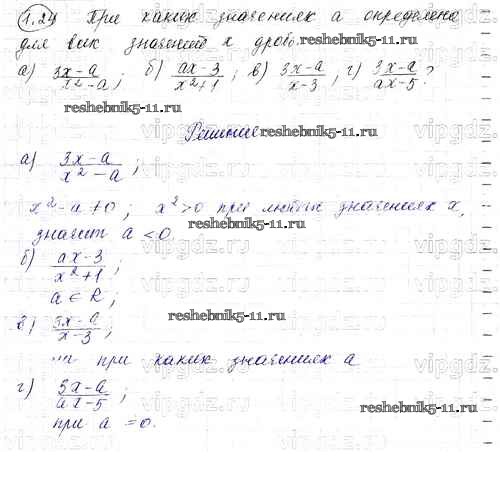 1.24 При каких значениях a определена
для всех значений x дробь
а) 3x-a / x²-a ; б) ax-3 / x²+1 ; в) 3x-a / x-3 ; г) 3x-a / ax-5 ?
reshebnik5-11.ru
Решение
reshebnik5-11.ru
а) 3x-a / x²-a ;
x²-a ≠ 0 ; x² > 0 при любых значениях x,
значит a < 0.
reshebnik5-11.ru
б) ax-3 / x²+1 ;
a ∈ R ;
в) 3x-a / x-3 ;
reshebnik5-11.ru
при каких значениях a
г) 3x-a / ax-5 ;
reshebnik5-11.ru
при a = 0.
vipgdz.ru